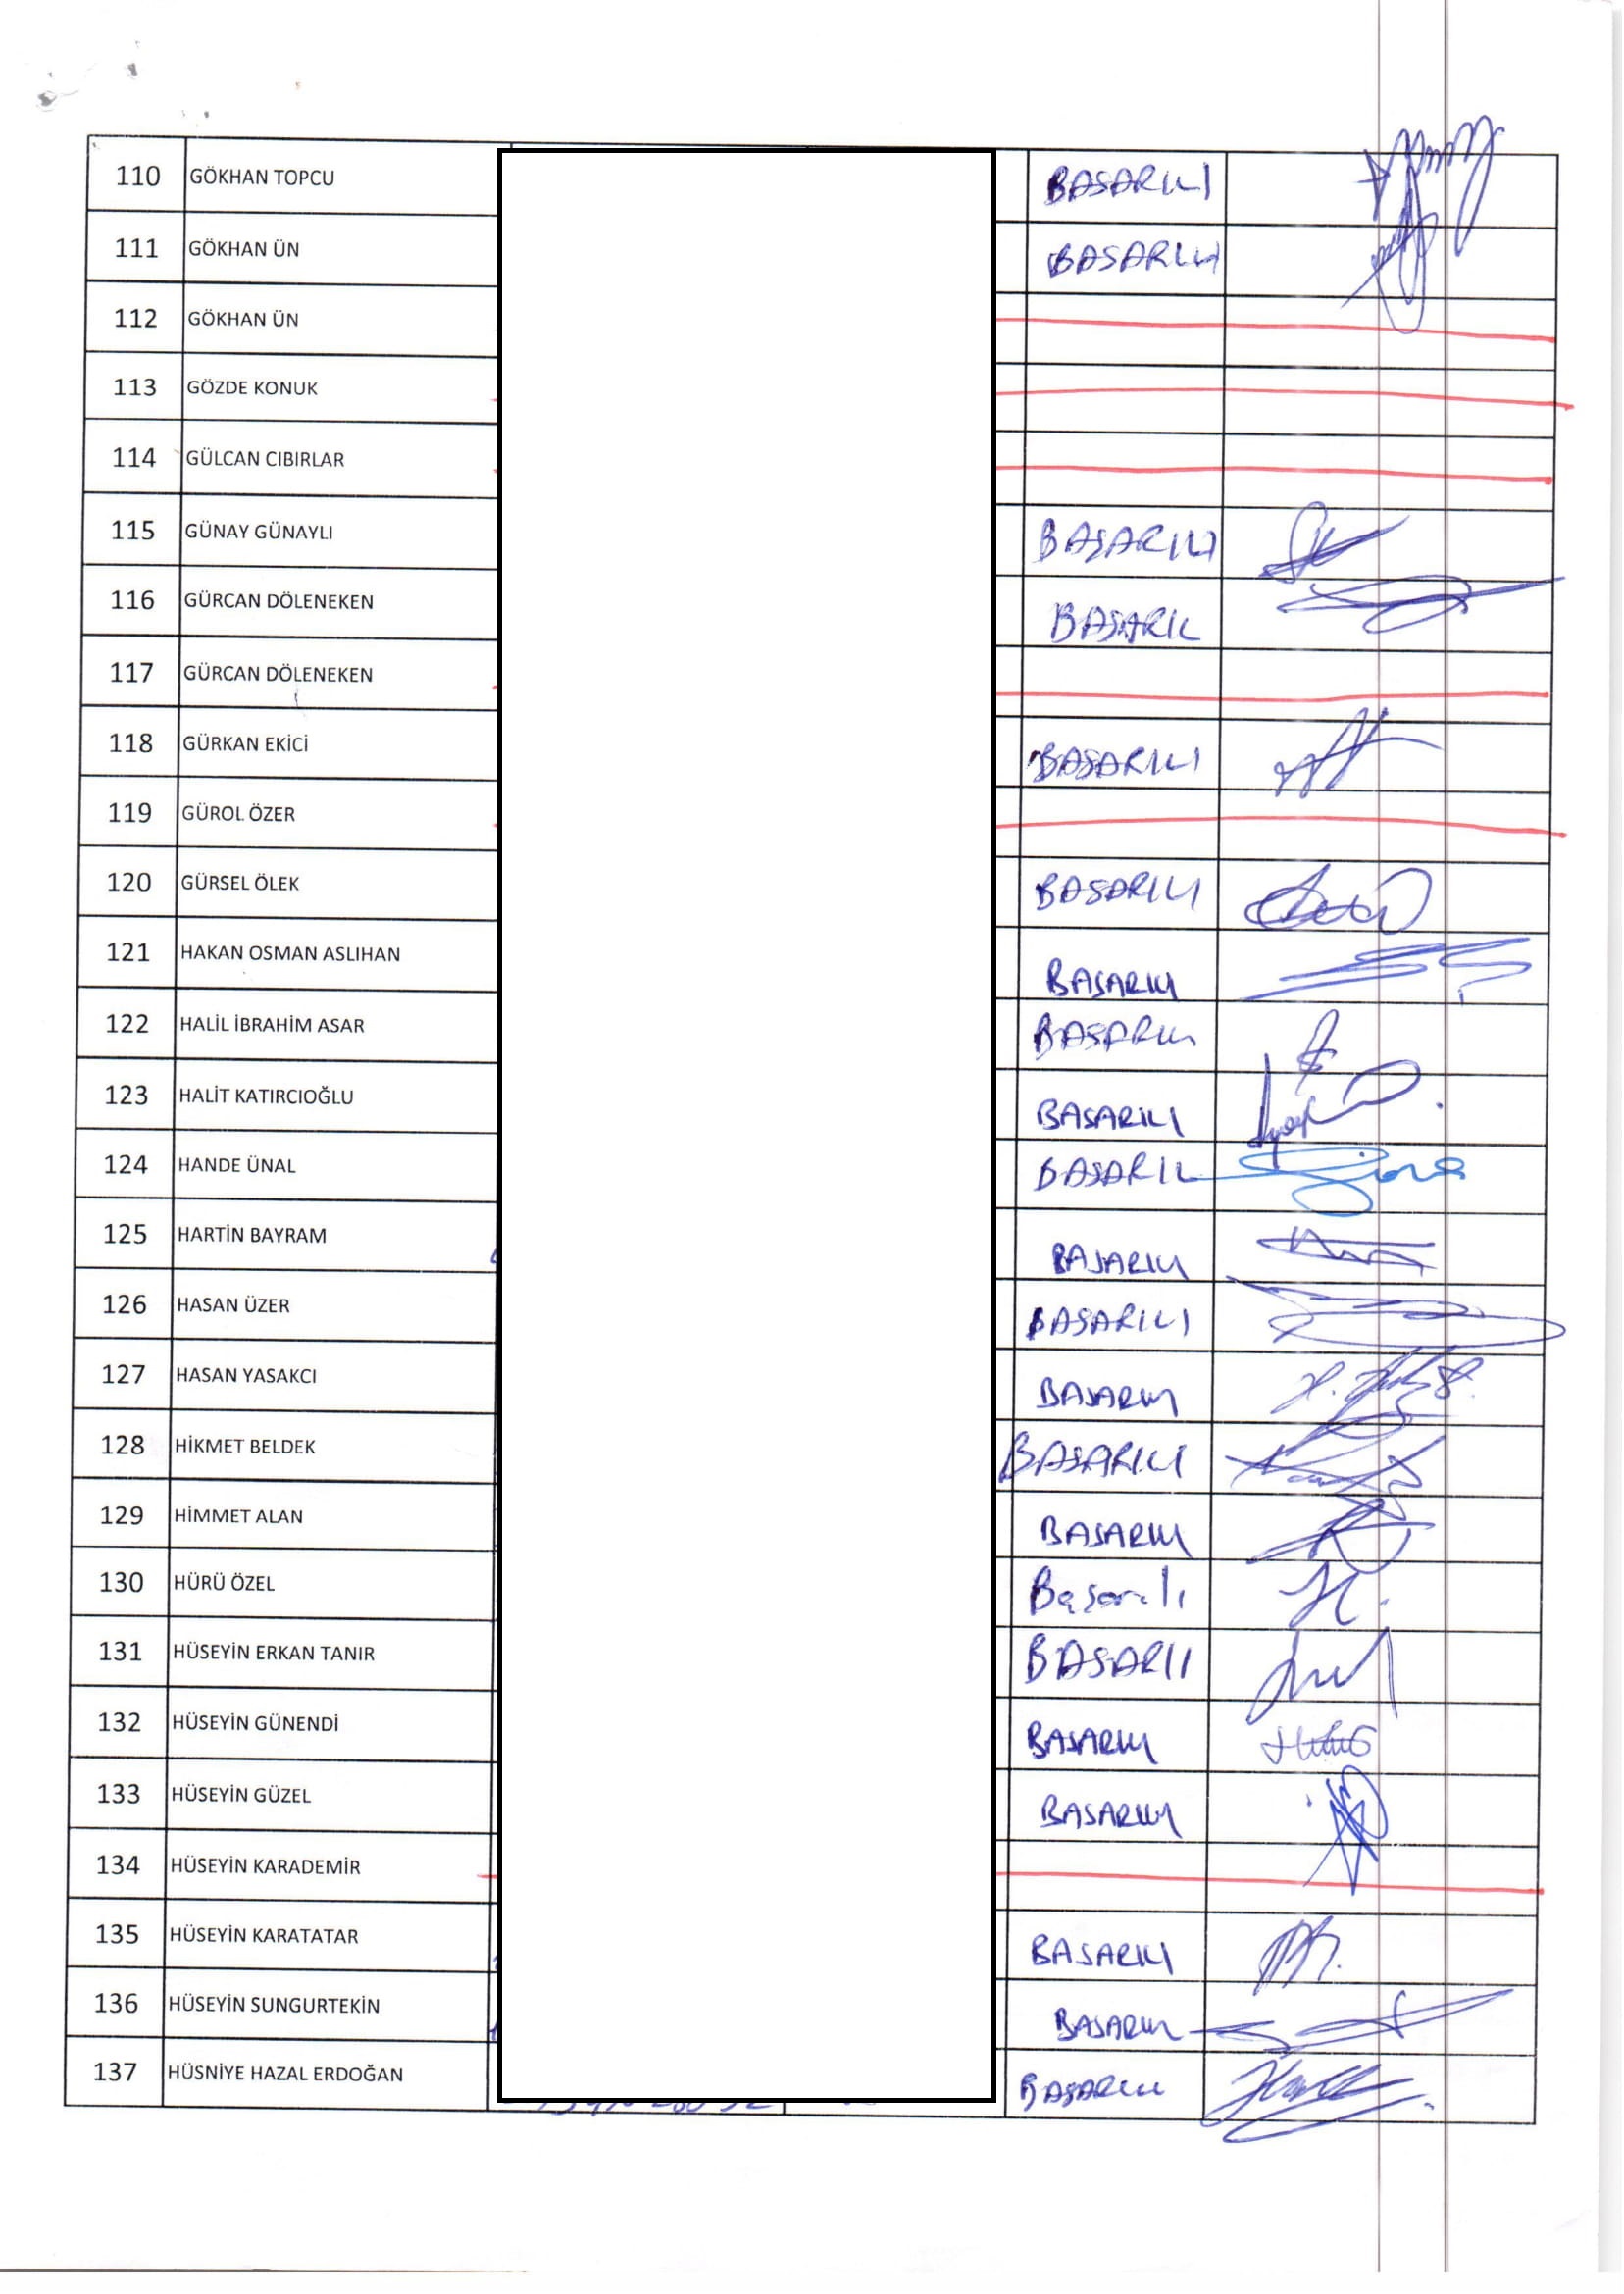 110 GÖKHAN TOPCU BASARILI
111 GÖKHAN ÜN BASARILI
112 GÖKHAN ÜN
113 GÖZDE KONUK
114 GÜLCAN CIBIRLAR
115 GÜNAY GÜNAYLI BAŞARILI
116 GÜRCAN DÖLENEKEN BAŞARIL
117 GÜRCAN DÖLENEKEN
118 GÜRKAN EKİCİ BAŞARILI
119 GÜROL ÖZER
120 GÜRSEL ÖLEK BASARILI
121 HAKAN OSMAN ASLIHAN BAŞARILI
122 HALİL İBRAHİM ASAR BAŞARILI
123 HALİT KATIRCIOĞLU BASARILI
124 HANDE ÜNAL BASARIL
125 HARTİN BAYRAM BAŞARILI
126 HASAN ÜZER BASARILI
127 HASAN YASAKCI BASARILI
128 HİKMET BELDEK BASARILI
129 HİMMET ALAN BASARILI
130 HÜRÜ ÖZEL Başarılı
131 HÜSEYİN ERKAN TANIR BASARILI
132 HÜSEYİN GÜNENDİ BASARILI
133 HÜSEYİN GÜZEL BASARILI
134 HÜSEYİN KARADEMİR
135 HÜSEYİN KARATATAR BASARILI
136 HÜSEYİN SUNGURTEKİN BASARILI
137 HÜSNİYE HAZAL ERDOĞAN BAŞARILI